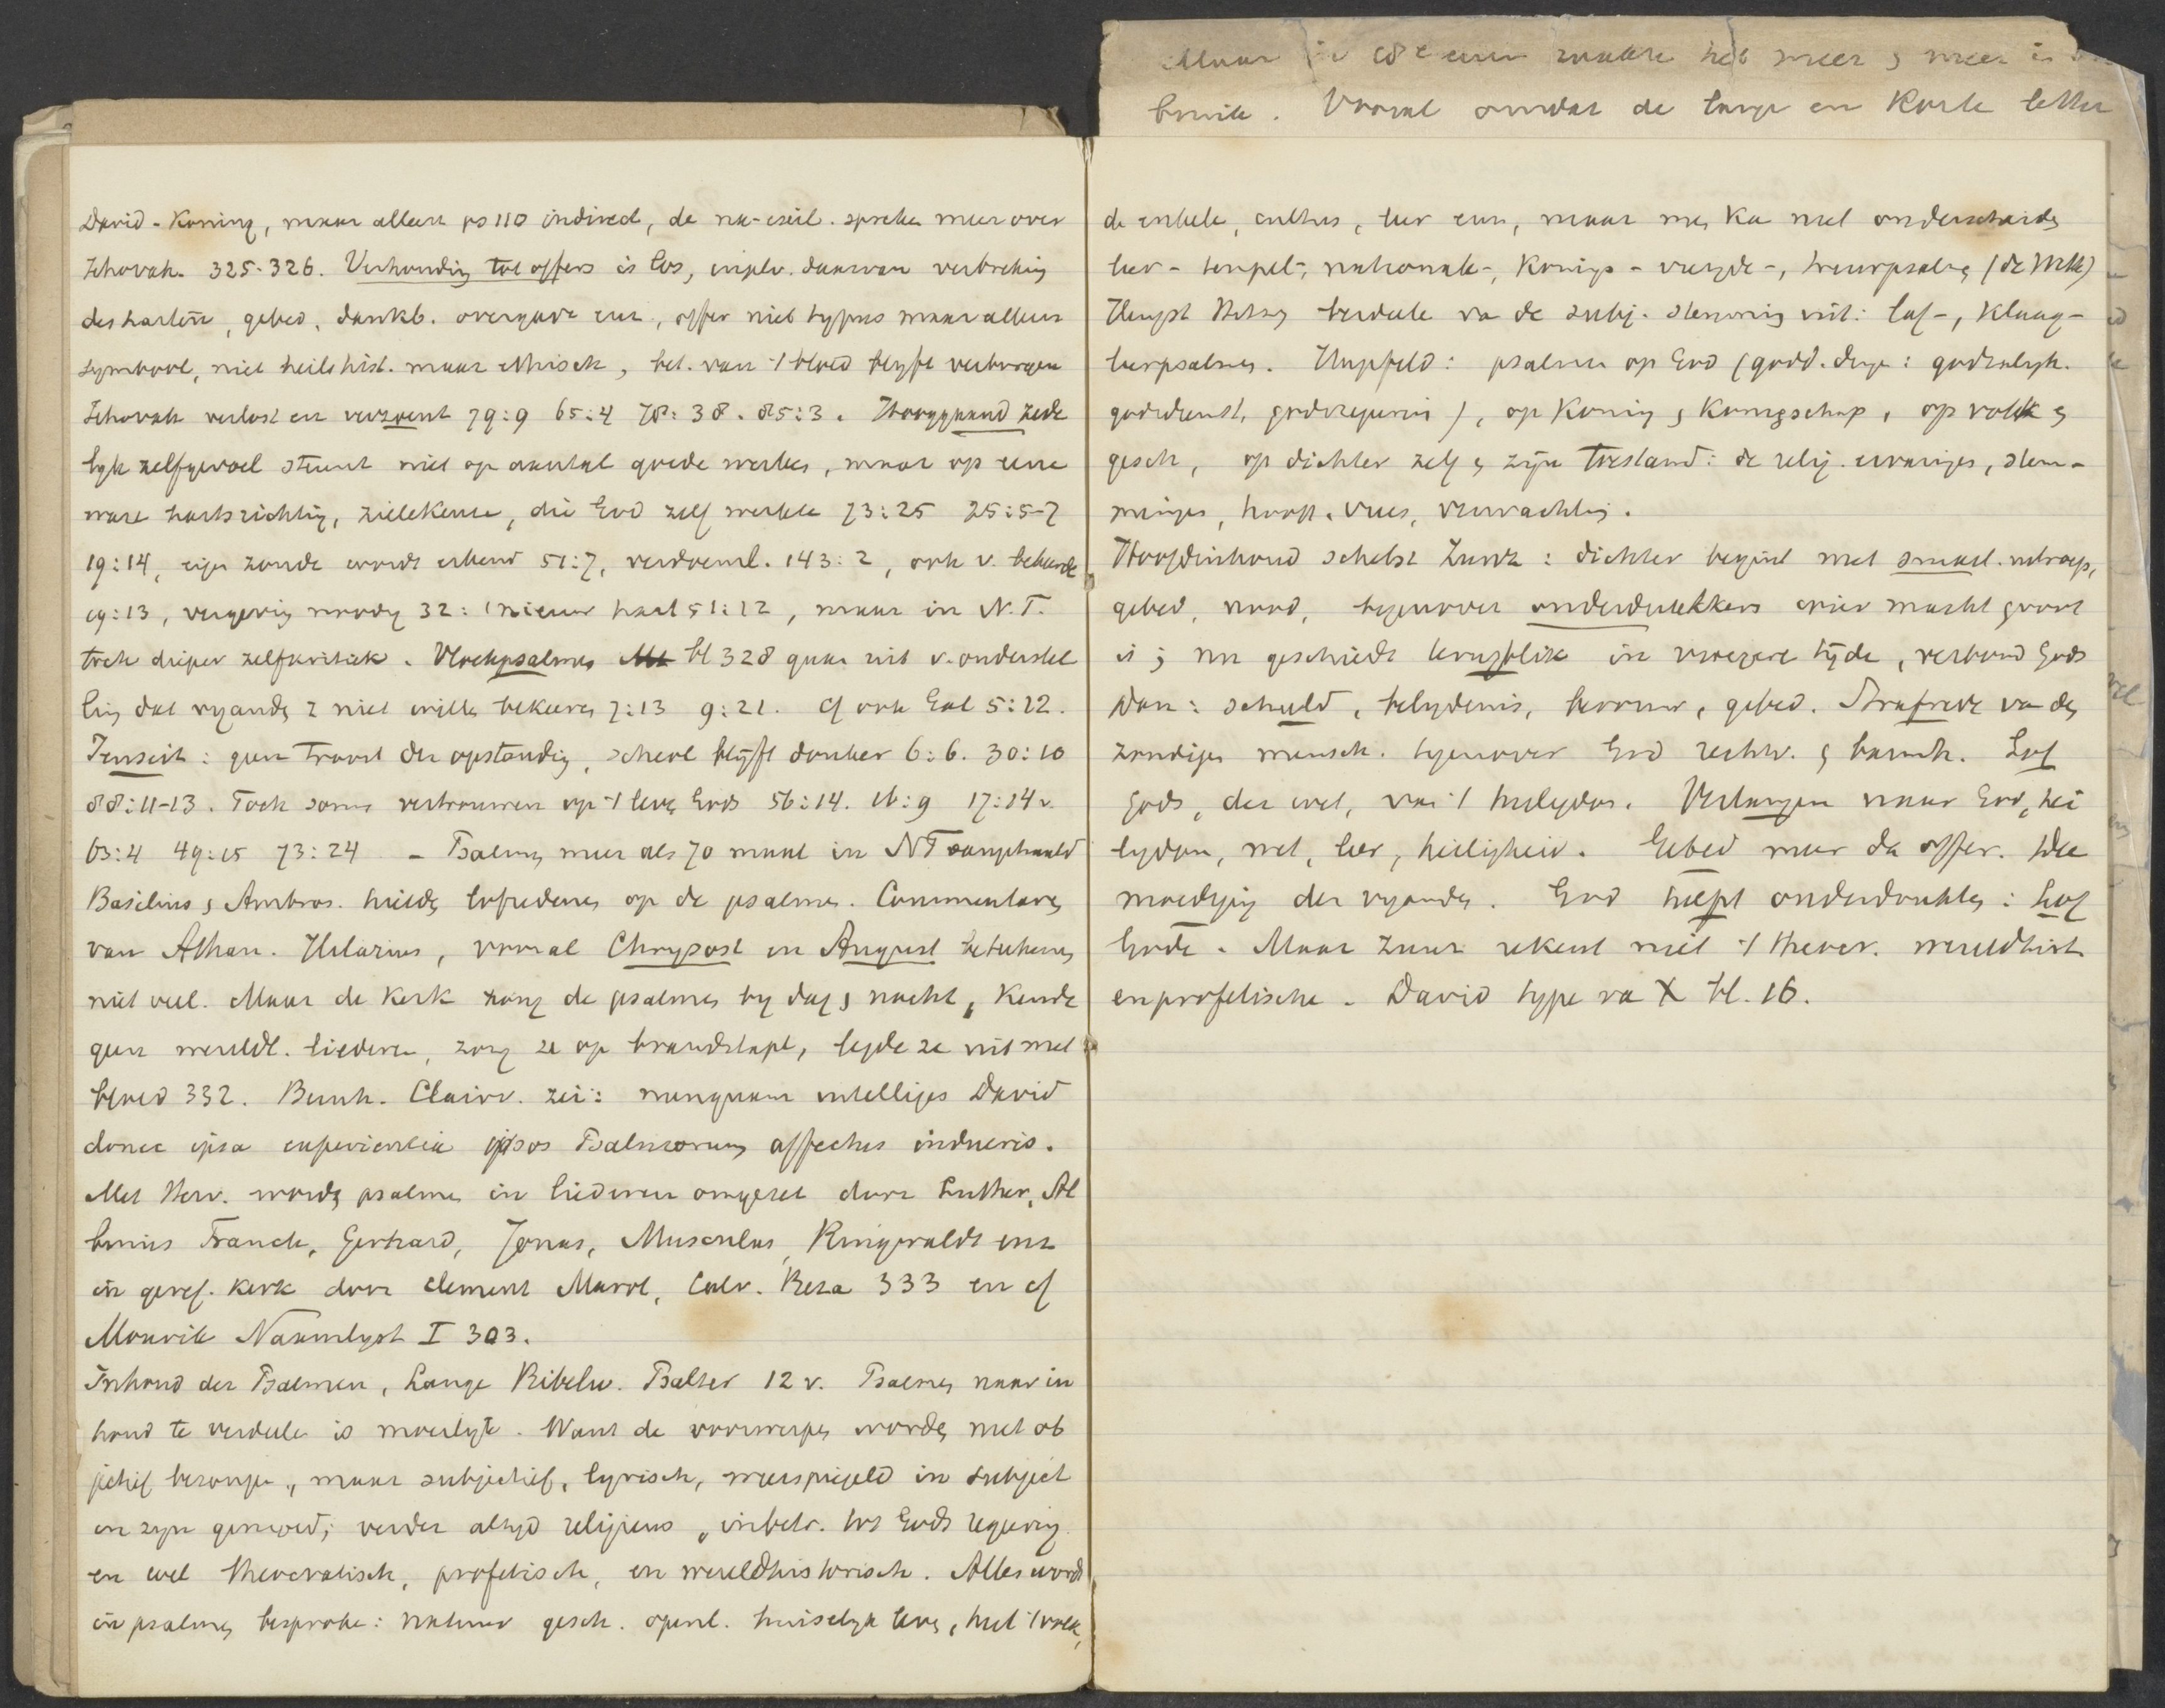 David-Koning, maar alleen ps 110 indirect, de na-exil. spreken meer over
Jehovah. 325-326. Verhouding tot offers is los, daarvan verbreking
des harten, gebed, dankb. overgave enz, offer niet typus maar alleen
symbool, niet heilshist. maar ethisch, bet. van 't bloed blyft verborgen
Jehovah verlost en verzoent 79:9 65:4 78:38. 85:3. Hooggaand zede
lyk zelfgevoel steunt niet op aantal goede werken, maar op eene
ware hartsrichting, zielekeuze, die God zelf werkte 73:25 25:5-7
19:14, eigen zonde wordt erkend 51:7, verdoeml. 143:2, ook v. bekeerde
19:13, vergeving noodig 32:1 nieuw hart 51:12, maar in N.T.
toch dieper zelfkritiek. Vloekpsalmen bl 328 gaan uit v. onderstel
ling dat vyanden z niet willen bekeeren 7:13 9:21. cf ook Gal 5:12.
Jenseit: geen troost der opstanding, scheol blyft donker 6:6. 30:10
88:11-13. Toch soms vertrouwen op 't leven Gods 56:14. 16:9 17:14v.
63:4 49:15 73:24 - Psalmen meer als 70 maal in NT aangehaald
Basilius en Ambros. hielden lofredenen op de psalmen. Commentaren
van Athan. Hilarius, vooral Chrysost en August beteekenen
niet veel. Maar de kerk zong de psalmen by dag en nacht, kende
geen wereldl. liederen, zong ze op brandstapel, legde ze uit met
bloed 332. Bernh. Clairv. zei: nunquam intelliges David
donec ipsa experientia ipsos Psalmorum affectus indueris.
Met Herv. worden psalmen in liederen omgezet door Luther, Al
binus Franck, Gerhard, Jonas, Musculus, Ringwaldt enz
in geref. kerk door Clement Marot, Calv. Beza 333 en cf
Mourik Naamlyst I 303.
Inhoud der Psalmen, Lange Bibelw. Psalter 12 v. Psalmen naar in
houd te verdeelen is moeilyk. Want de voorwerpen worden niet ob
jectief bezongen, maar subjectief, lyrisch, weerspiegeld in subject
en zyn gemoed; verder altyd religieus, in betr. tot Gods regeering
en wel theocratisch, profetisch, en wereldhistorisch. Alles wordt
in psalmen besproken: natuur gesch. openb. huiselyk leven, het volk,
Maar in 18e eeuw raakte het meer en meer in
bruik. Vooral omdat de lange en korte letter
de enkele, cultus, leer enz, maar men kan niet onderscheiden
leer-, tempel-, nationale-, konings-, vreugde-, treurpsalmen (de Wette)
Hengst verdeelen van de subj. stemming uit: lof-, klaag-
leerpsalmen. Hupfeld: psalmen op God (godd. dingen: godzaligh.
godsdienst, godsregering), op Koning en Koningschap, op volk en
gesch, op dichter zelf en zyn toestand: de relig. ervaringen, stem-
mingen, hoop, vrees, verwachting.
Hoofdinhoud schetst Zunz: dichter begint met smart. uitroep,
gebed, nood, tegenover onderdrukkers wier macht groot
is; nu geschiedt terugblik in vroegere tyden, verbond Gods
Dan: schuld, belydenis, berouw, gebed. Strafrede van den
zondigen mensch. tegenover God rechtv. en barmh. Lof
Gods, der wet, van 't heilig Verlangen naar God,
lyden, wet, leer, heiligheid. Gebed meer dan offer. Dee
moediging der vyanden. God helpt onderdrukten: Lof
Gode. Maar Zunz rekent niet 't theocr. wereldhist
en profetische. David type van X bl. 16.